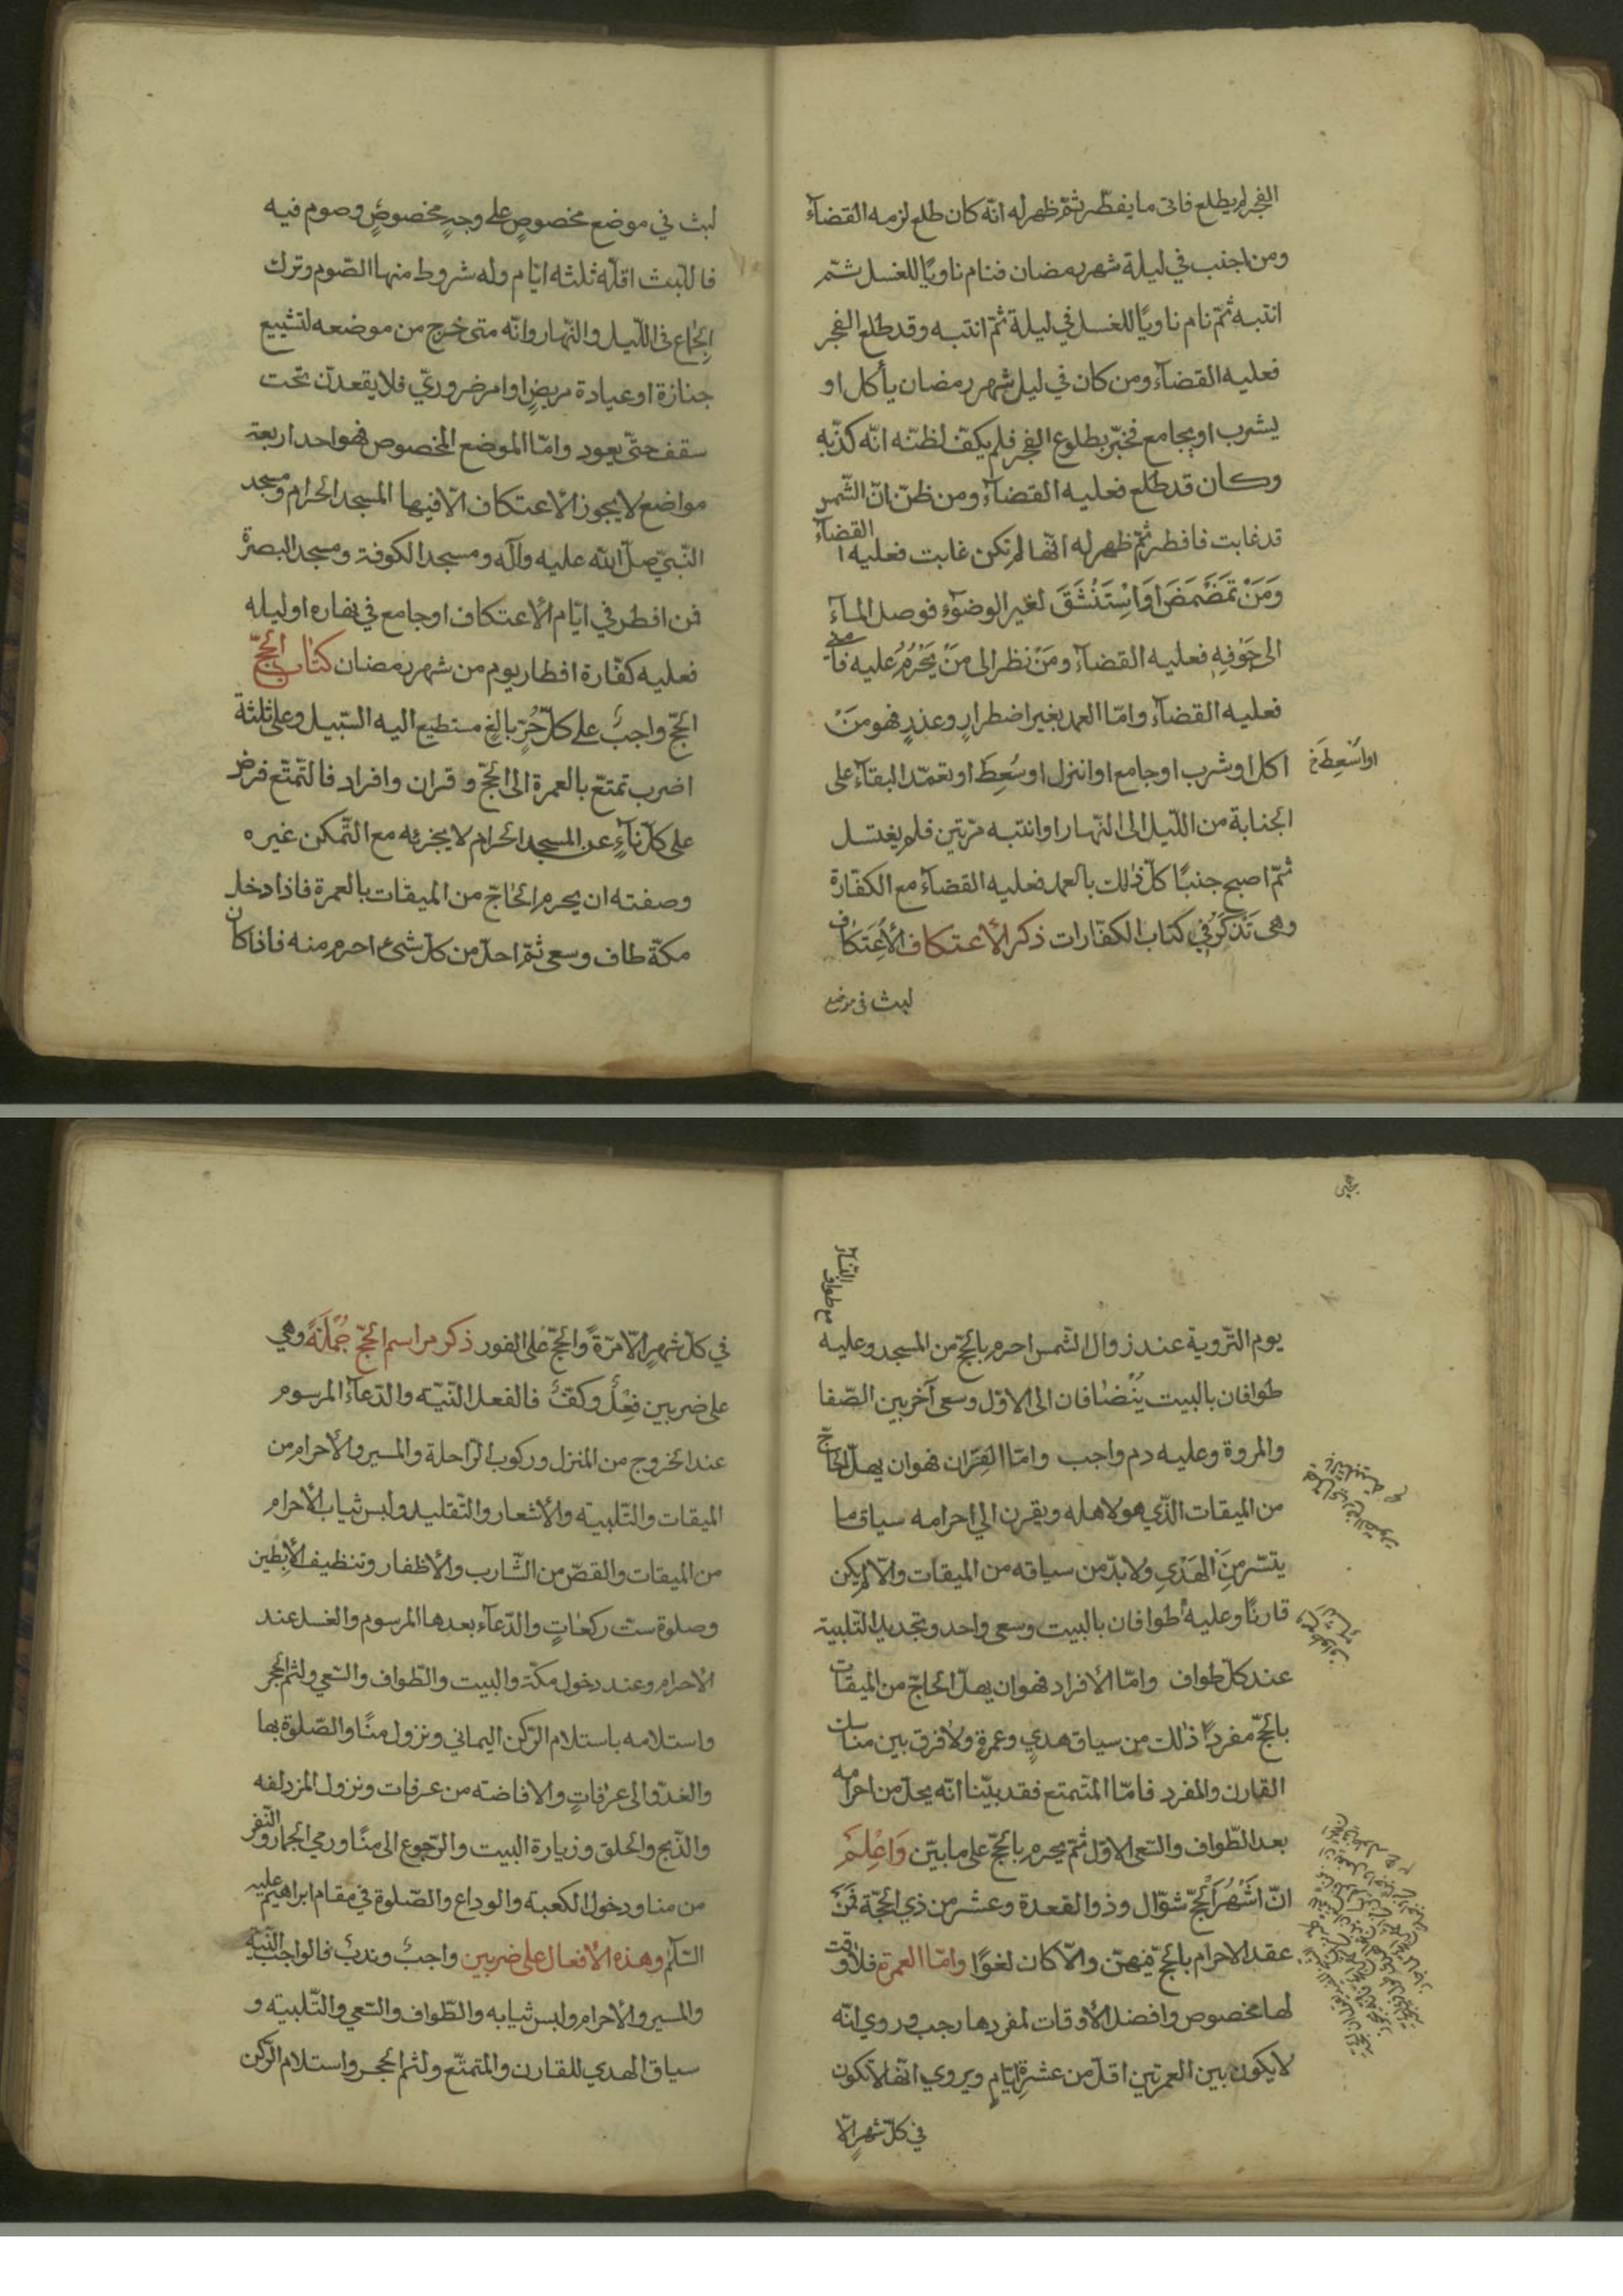 الفجر لم يطلع فاتى ما يفطّر ثمّ ظهر له انّه كان طلع لزمه القضآء
ومن اجنب في ليلة شهر رمضان فنام ناويًا للغسل ثمّ
انتبه ثمّ نام ناويًا للغسل في ليلة ثمّ انتبه وقد طلع الفجر
فعليه القضآء ومن كان في ليل شهر رمضان يأكل او
يشرب او يجامع فخبّر بطلوع الفجر فلم يكفّ لظنّه انّه كذّبه
وكان قد طلع فعليه القضآء ومن ظنّ انّ الشّمس
قد غابت فافطر ثمّ ظهر له انّها لم تكن غابت فعليه القضآء
وَمَنْ تمَضْمَضَ اَوَاسْتَنْشَقَ لغير الوضوٓء فوصل المآء
الى جَوْفِهِ فعليه القضآء ومَنْ نظر الى مَنْ يَحْرُمُ عليه فامنى
فعليه القضآء وامّا العمد بغير اضطرارٍ وعذرٍ فهو مَنْ
اكل او شرب او جامع او انزل او سُعِطَ او تعمّد البقآء على
او اسْتعِطَ خ
الجنابة من اللّيل الى النّهار او انتبه مرّتين فلم يغتسل
ثمّ اصبح جنبًا كلّ ذلك بالعمد فعليه القضآء مع الكفّارة
وهى تذكَرُ في كتاب الكفّارات ذكر الأعتكاف الأعتكاف
لبث في موضع
لبث في موضع مخصوصٍ على وجهٍ مخصوصٍ وصوم فيه
فاللّبث اقلّه ثلثه ايّام وله شروط منها الصّوم وترك
الجماع فى اللّيل والنّهار وانّه متى خرج من موضعه لتشييع
جنازة او عيادة مريضٍ او امر ضروريّ فلا يقعدنّ تحت
سقف حتّى يعود وامّا الموضع المخصوص فهو احد اربعة
مواضع لا يجوز الأعتكاف الّا فيها المسجد الحرام ومسجد
النّبيّ صلّى الله عليه وآله ومسجد الكوفة ومسجد البصرة
فمن افطر في ايّام الأعتكاف او جامع في نهاره او ليله
فعليه كفّارة افطار يوم من شهر رمضان كتاب الحجّ
الحجّ واجبٌ على كلّ حُرٍّ بالغٍ مستطيع اليه السّبيل وعلى ثلثة
اضرب تمتع بالعمرة الى الحجّ و قران وافراد فالتّمتّع فرض
على كلّ نآءٍ عن المسجد الحرام لا يجزئه مع التّمكن غيره
وصفته ان يحرم الحاجّ من الميقات بالعمرة فاذا دخل
مكّة طاف وسعى ثمّ احلّ من كلّ شئ احرم منه فاذا كان
مع طواف النّسآء
يوم التّروية عند زوال الشّمس احرم بالحجّ من المسجد وعليه
طوافان بالبيت يُنضافان الى الاوّل وسعى آخر بين الصّفا
والمروة وعليه دم واجب وامّا القِران فهو ان يهلّ الحاجّ
من الميقات الّذي هو لاهله ويقرن الي احرامه سياق ما
يتسّر مِنَ الهَدْيِ ولا بدّ من سياقه من الميقات والّا لم يكن
قارنًا وعليه طوافان بالبيت وسعى واحد وتجديد التّلبية
عند كلّ طواف وامّا الأفراد فهو ان يهلّ الحاجّ من الميقات
بالحجّ مفردًا ذلك من سياق هديٍ وعمرة ولا فرق بين مناسك
القارن والمفرد فامّا المتمتع فقد بيّنا انّه يحلّ من احرامه
بعد الطّواف والسّعى الاوّل ثمّ يحرم بالحجّ على ما بيّن وَاعْلَمْ
انّ اشْهُرَ الحَجّ شوّال وذو القعدة وعشر من ذي الحجّة فَمَنْ
عقد الاحرام بالحجّ فيهنّ والّا كان لغوًا وامّا العمرة فلا وقت
لها مخصوص وافضل الأوقات لمفردها رجب وروي انّه
لا يكون بين العمرتين اقلّ من عشرة ايّامٍ ويروي انّها لا تكون
في كلّ شهرٍ الّا
في كلّ شهرٍ الّا مرّةً والحجّ على الفور ذكر مراسم الحجّ جُملَةً وهي
على ضربين فِعْلٌ وكفٌّ فالفعل النّيّة والدّعآء المرسوم
عند الخروج من المنزل وركوب الرّاحلة والمسير والأحرام من
الميقات والتّلبية والأشعار والتّقليد ولبس ثياب الأحرام
من الميقات والقصّ من الشّارب والأظفار وتنظيف الأبطين
وصلوة ستّ ركعاتٍ والدّعآء بعدها المرسوم والغسل عند
الأحرام وعند دخول مكّة والبيت والطّواف والسّعي ولثم الحجر
واستلامه باستلام الرّكن اليماني ونزول منًا والصّلوة بها
والغدوّ الى عرفاتٍ والافاضة من عرفات ونزول المزدلفه
والذّبح والحلق وزيارة البيت والرّجوع الى منًا ورمي الجمار والنّفر
من منا ودخول الكعبة والوداع والصّلوة في مقام ابراهيم عليه
السّلم وهذه الأفعال على ضربين واجبٌ وندبٌ فالواجب النّيّة
والمسير والأحرام ولبس ثيابه والطّواف والسّعي والتّلبيته و
سياق الهدي للقارن والمتمتّع ولثم الحجر واستلام الرّكن